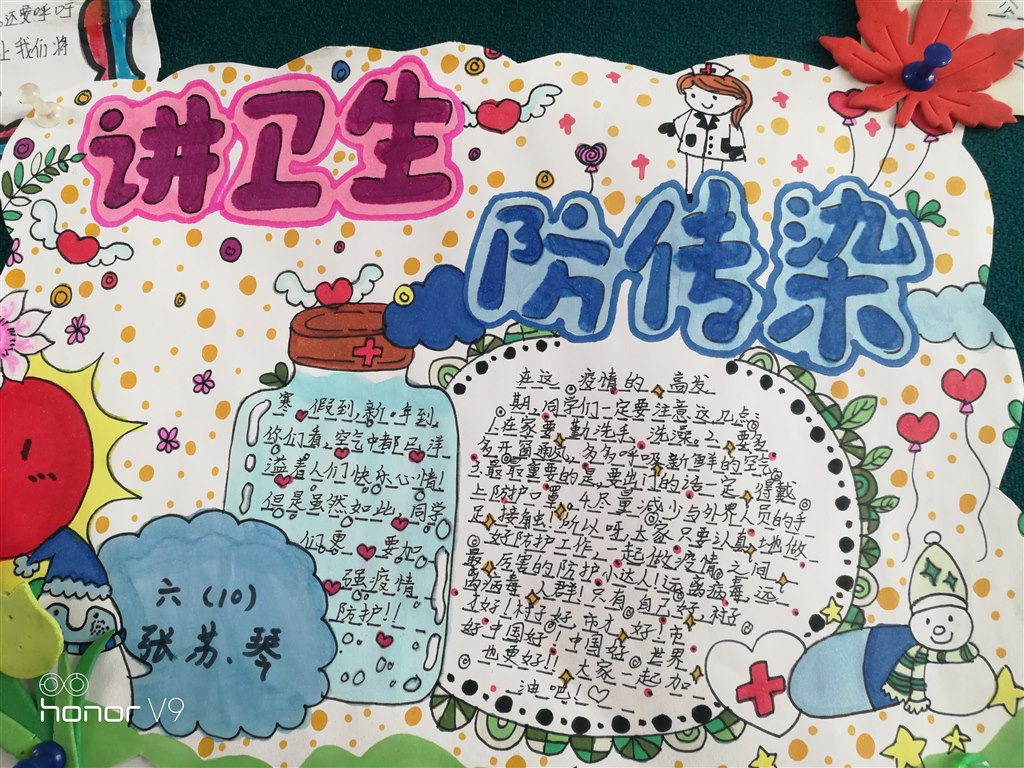 还要呼呼
让我们将
公
讲卫生
防传染
寒假到,新年到,
你们看,空气中都已洋
溢着人们快乐心情!
但是虽然如此,同学
们要要加
强疫情
防护!!
在这疫情的高发
期,同学们一定要注意这几点:
1.在家要勤洗手、洗澡。2.要多
多开窗通风,多多呼吸新鲜的空气。
3.最最重要的是,要出门的话一定得戴
上防护口罩。4.尽量减少与外界人员的手
足接触!所以呀,大家只要认真地做
好防护工作,一起做疫情之间
最厉害的防护小达人!远离病毒,远
离病毒人群!只有自己好,村才
才好!村好,市才好!市
好中国好!中国好,世界
也要好!!大家一起加
油吧!♡
六(10)
张苏琴
honor V9